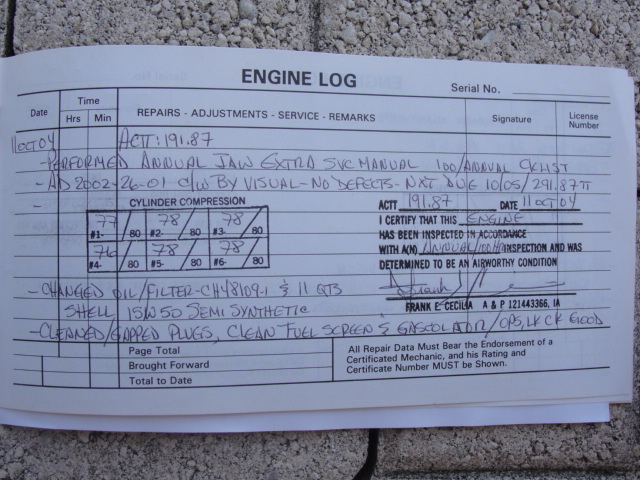 ENGINE LOG
Serial No.
Date Time REPAIRS - ADJUSTMENTS - SERVICE - REMARKS Signature License Number
Hrs Min
11 OCT 04 ACTT: 191.87
-PERFORMED ANNUAL IAW EXTRA SVC MANUAL 100/ANNUAL CKLIST
-AD 2002-26-01 C/W BY VISUAL-NO DEFECTS-NXT DUE 10/05/291.87TT
- CYLINDER COMPRESSION
#1- 77/80 #2- 78/80 #3- 78/80
#4- 76/80 #5- 78/80 #6- 78/80
ACTT 191.87 DATE 11 OCT 04
I CERTIFY THAT THIS ENGINE
HAS BEEN INSPECTED IN ACCORDANCE
WITH A(N) ANNUAL/100HR INSPECTION AND WAS
DETERMINED TO BE AN AIRWORTHY CONDITION
FRANK E CECILIA A & P 121443366, IA
-CHANGED OIL/FILTER-CH48109-1 & 11 QTS
SHELL 15W50 SEMI SYNTHETIC
-CLEANED/GAPPED PLUGS, CLEAN FUEL SCREEN & GASCOLATOR/OPS, LK CK GOOD
Page Total
Brought Forward
Total to Date
All Repair Data Must Bear the Endorsement of a
Certificated Mechanic, and his Rating and
Certificate Number MUST be Shown.